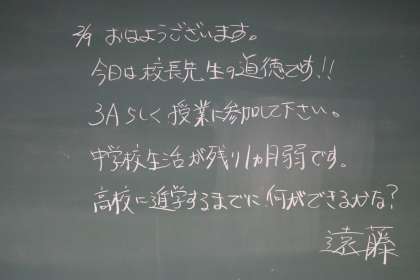 2/9 おはようございます。
今日は校長先生の道徳です!!
3Aらしく授業に参加して下さい。
中学校生活が残り1ヵ月弱です。
高校に進学するまでに何ができるかな?
遠藤